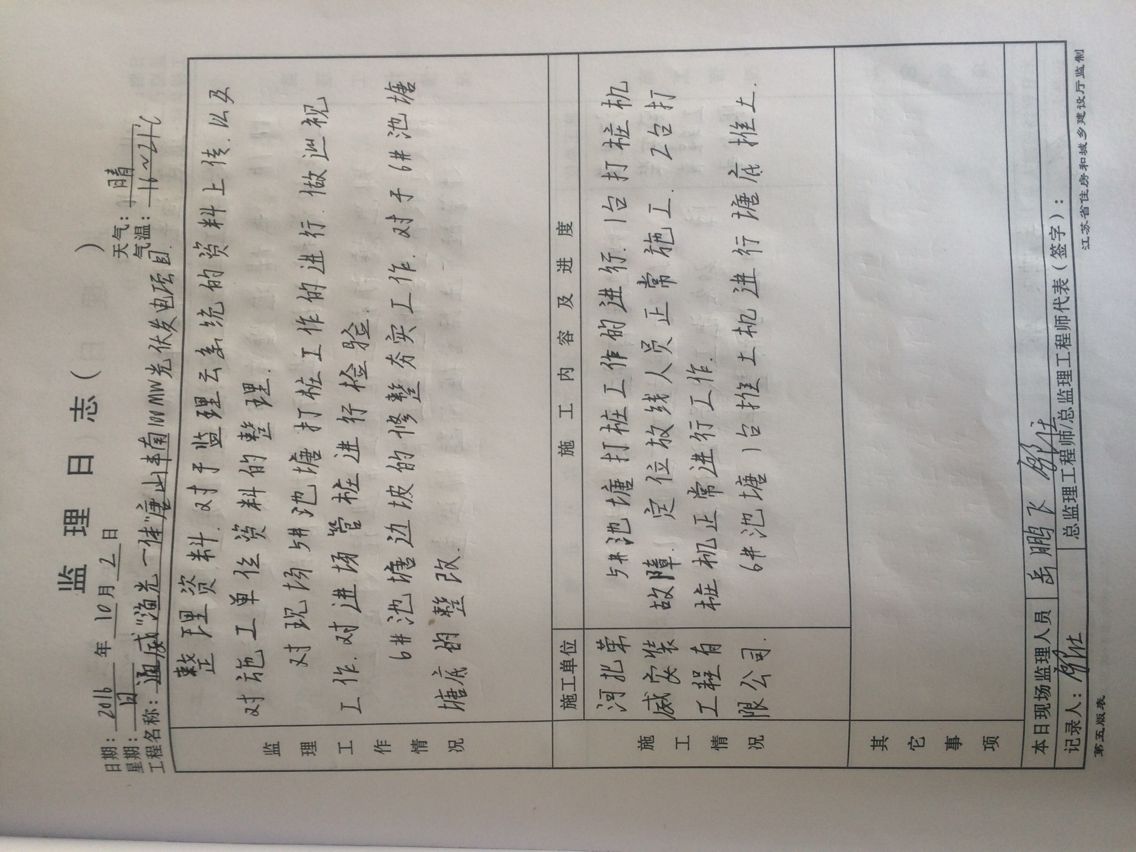 监 理 日 志（ ）
日期：2016 年 10 月 2 日
天气：晴
星期：日
气温：16～21℃
工程名称：通威“渔光一体”唐山丰南100MW光伏发电项目
监理工作情况
整理资料.对于监理云系统的资料上传.以及
对施工单位资料的整理.
对现场5#池塘打桩工作的进行.做巡视
工作.对进场管桩进行检验.
6#池塘边坡的修整夯实工作.对于6#池塘
塘底的整改.
施工情况
施工单位
施 工 内 容 及 进 度
威安装
工程有
限公司.
5#池塘打桩工作的进行.1台打桩机
故障.定位放线人员正常施工.2台打
桩机正常进行工作.
6#池塘1台推土机进行塘底推土.
其它事项
本日现场监理人员
岳鹏飞
记录人：
总监理工程师/总监理工程师代表（签字）：
第五版表
江苏省住房和城乡建设厅监制